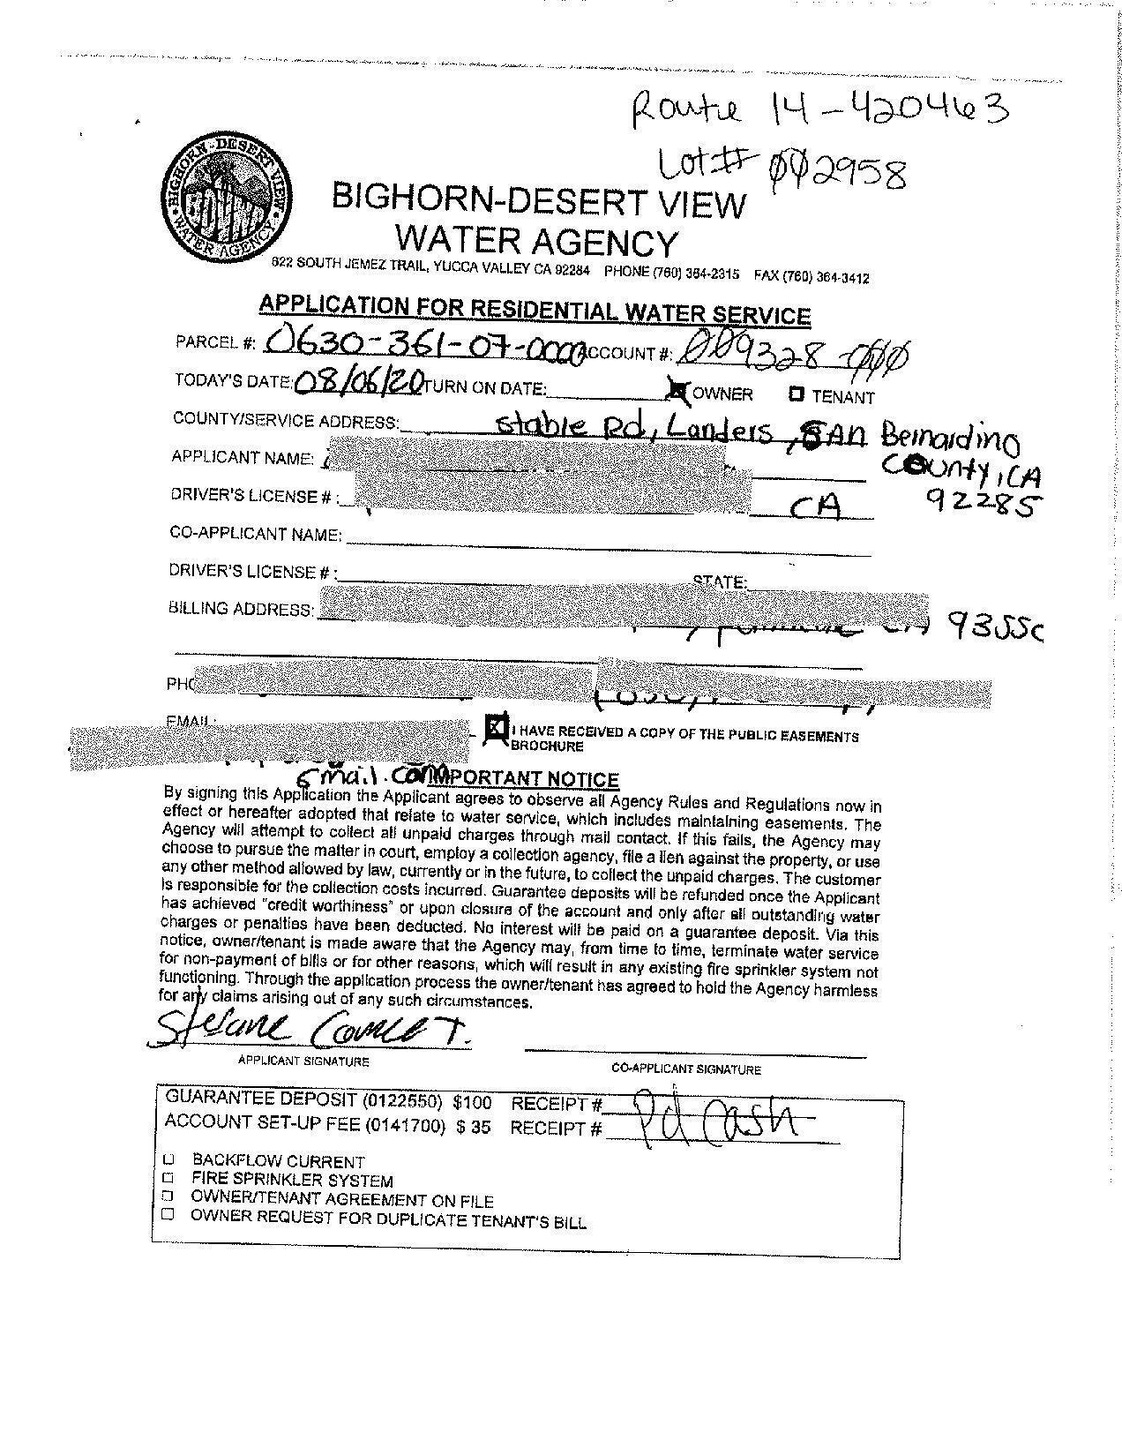 Route 14-420463
Lot# 002958
BIGHORN-DESERT VIEW
WATER AGENCY
BIGHORN-DESERT VIEW WATER AGENCY
622 SOUTH JEMEZ TRAIL, YUCCA VALLEY CA 92284 PHONE (760) 364-2315 FAX (760) 364-3412
APPLICATION FOR RESIDENTIAL WATER SERVICE
PARCEL #: 0630-361-07-0000 ACCOUNT #: 009328-000
TODAY'S DATE: 08/06/20 TURN ON DATE: OWNER TENANT
COUNTY/SERVICE ADDRESS: Stable Rd, Landers, SAN Bernardino
County, CA
92285
APPLICANT NAME:
DRIVER'S LICENSE #: CA
CO-APPLICANT NAME:
DRIVER'S LICENSE #: STATE:
BILLING ADDRESS: 9355c
PHO
EMAIL:
I HAVE RECEIVED A COPY OF THE PUBLIC EASEMENTS
BROCHURE
Gmail.com
IMPORTANT NOTICE
By signing this Application the Applicant agrees to observe all Agency Rules and Regulations now in
effect or hereafter adopted that relate to water service, which includes maintaining easements. The
Agency will attempt to collect all unpaid charges through mail contact. If this fails, the Agency may
choose to pursue the matter in court, employ a collection agency, file a lien against the property, or use
any other method allowed by law, currently or in the future, to collect the unpaid charges. The customer
is responsible for the collection costs incurred. Guarantee deposits will be refunded once the Applicant
has achieved "credit worthiness" or upon closure of the account and only after all outstanding water
charges or penalties have been deducted. No interest will be paid on a guarantee deposit. Via this
notice, owner/tenant is made aware that the Agency may, from time to time, terminate water service
for non-payment of bills or for other reasons, which will result in any existing fire sprinkler system not
functioning. Through the application process the owner/tenant has agreed to hold the Agency harmless
for any claims arising out of any such circumstances.
APPLICANT SIGNATURE CO-APPLICANT SIGNATURE
GUARANTEE DEPOSIT (0122550) $100 RECEIPT #
ACCOUNT SET-UP FEE (0141700) $ 35 RECEIPT #
Pd Cash
BACKFLOW CURRENT
FIRE SPRINKLER SYSTEM
OWNER/TENANT AGREEMENT ON FILE
OWNER REQUEST FOR DUPLICATE TENANT'S BILL